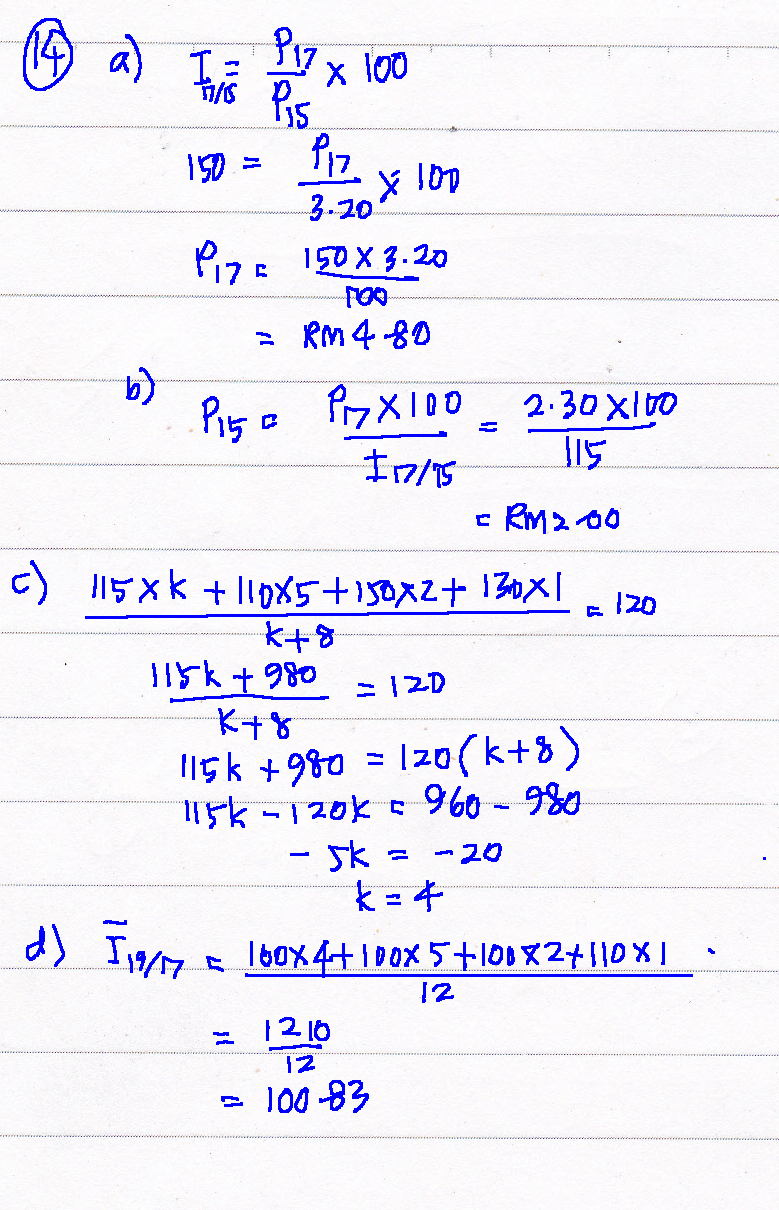 14 a) I₁₇/₁₅ = P₁₇/P₁₅ × 100
150 = P₁₇/3.20 × 100
P₁₇ = 150 × 3.20/100
= RM 4.80
b) P₁₅ = P₁₇ × 100/I₁₇/₁₅ = 2.30 × 100/115
= RM 2.00
c) 115 × k + 110×5 + 150×2 + 130×1/k+8 = 120
115k + 980/k+8 = 120
115k + 980 = 120(k+8)
115k - 120k = 960 - 980
- 5k = - 20
k = 4
d) Ī₁₉/₁₇ = 100×4 + 100×5 + 100×2 + 110×1/12
= 1210/12
= 100.83